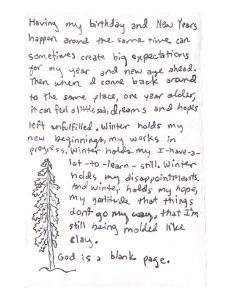 Having my birthday and New Years
happen around the same time can
sometimes create big expectations
for my year and new age ahead.
Then when I come back around
to the same place, one year older,
it can feel a little sad, dreams and hopes
left unfulfilled. Winter holds my
new beginnings, my works in
progress. Winter holds my I-have-a-
lot-to-learn-still. Winter
holds my disappointments.
And winter holds my hope,
my gratitude that things
don't go my way, that I'm
still being molded like
clay.
God is a blank page.